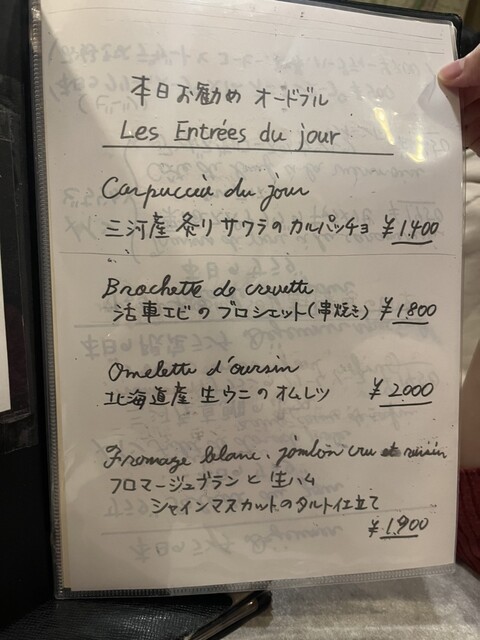 本日お勧め オードブル
Les Entrées du jour
Carpuccio du jour
三河産 炙り サワラの カルパッチョ ¥1,400
Brochette de crevette
活車エビの ブロシェット(串焼き) ¥1,800
Omelette d'oursin
北海道産 生ウニの オムレツ ¥2000
Fromage blanc, jambon cru et raisin
フロマージュブランと 生ハム
シャインマスカットのタルト仕立て
¥1,900